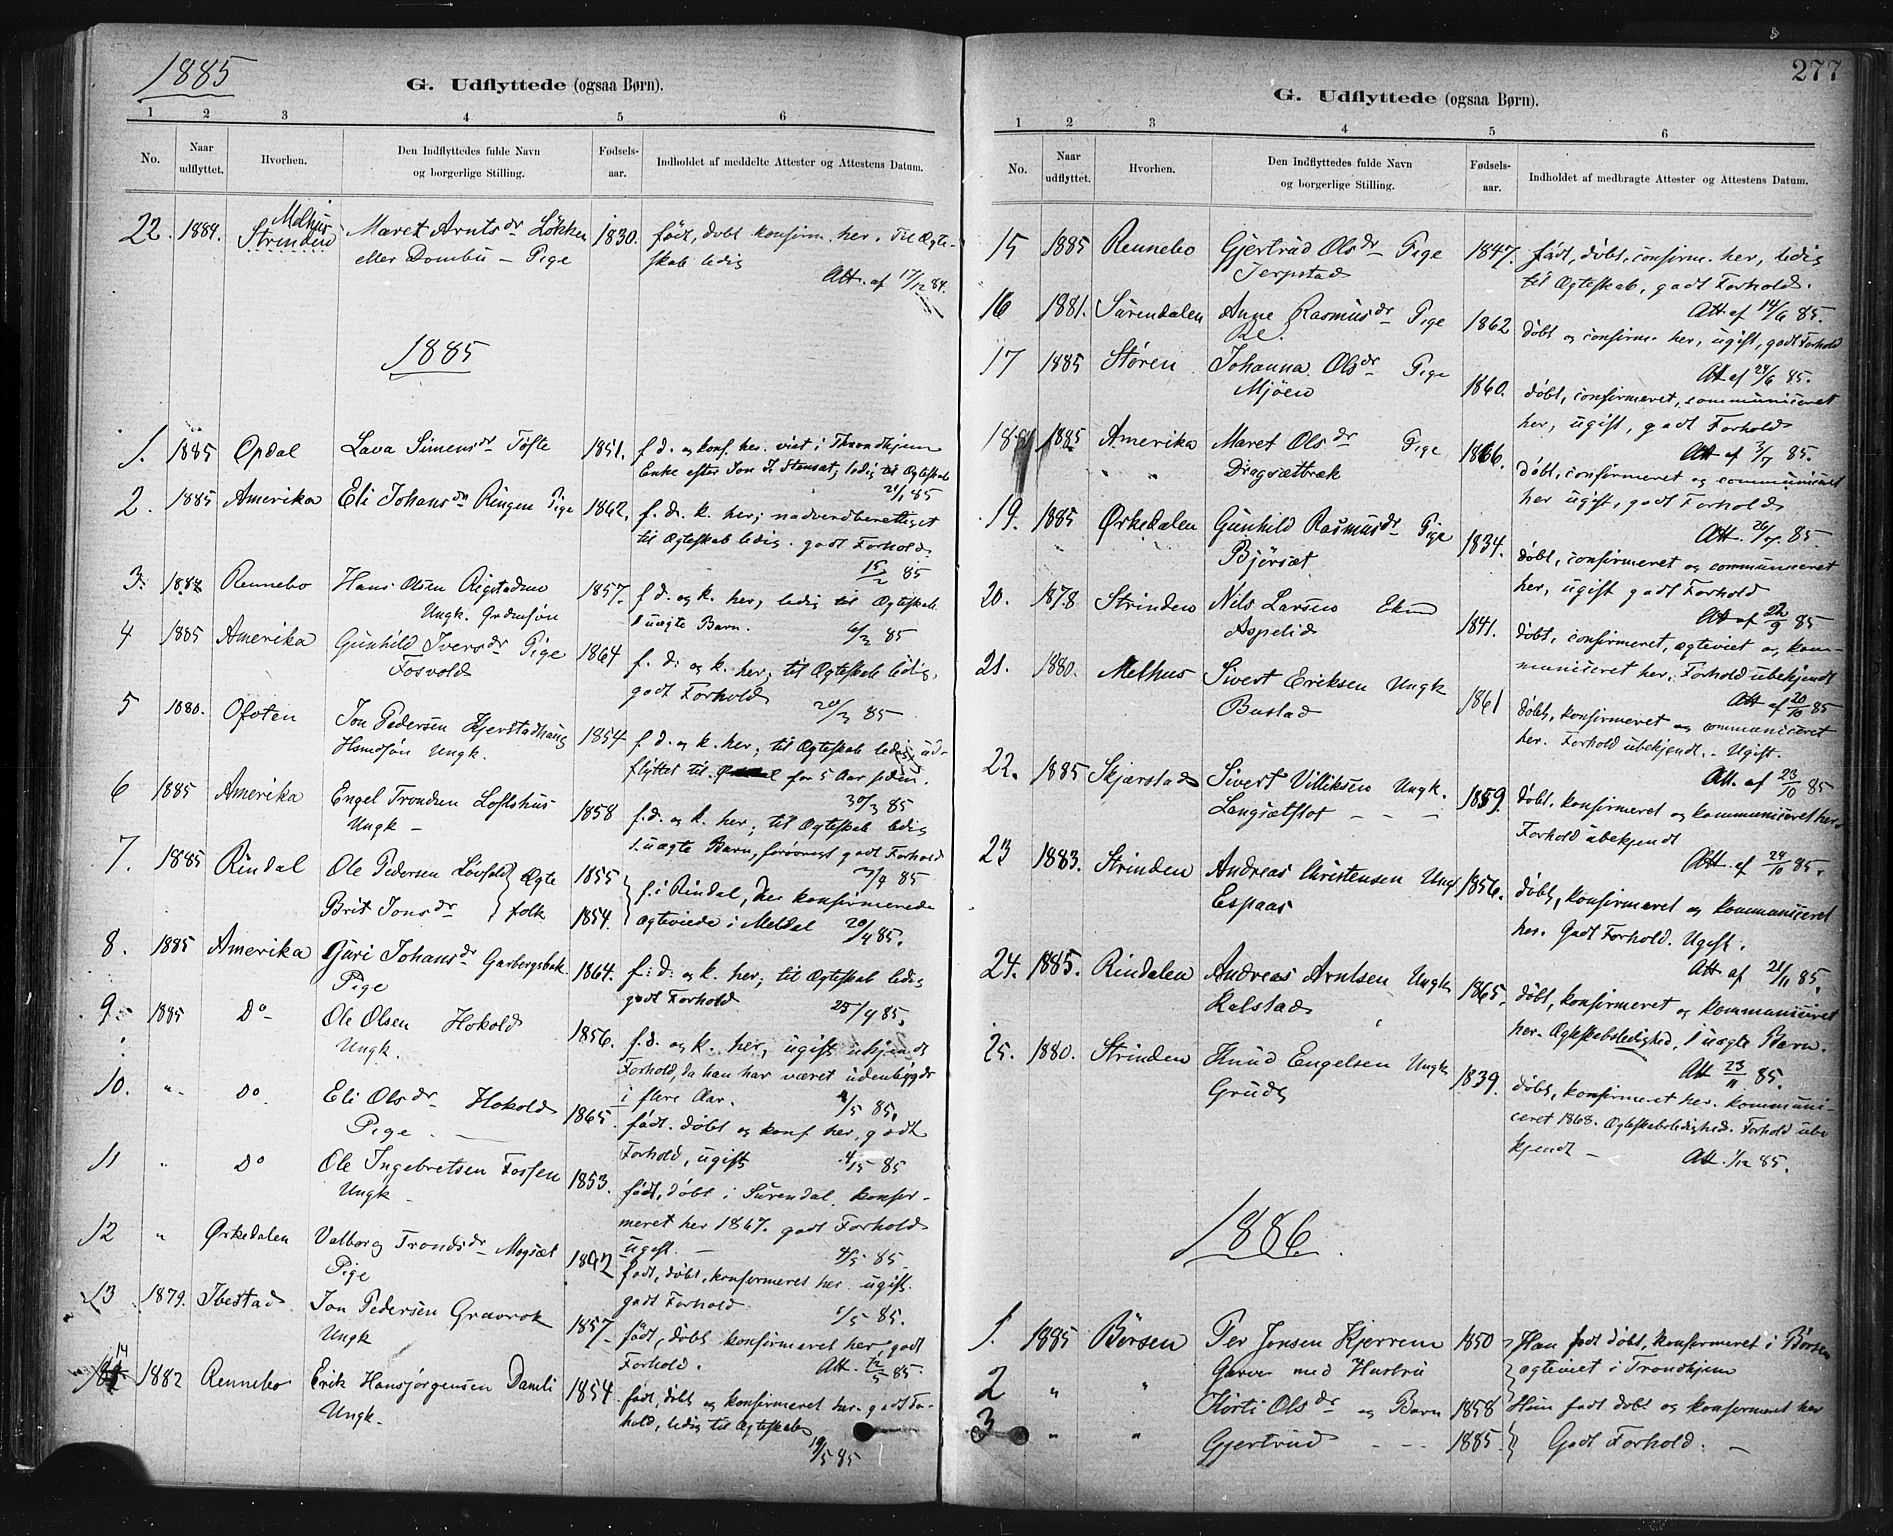 1885
G. Udflyttede (ogsaa Børn).
1 2 3 4 5 6
No. Naar udflyttet. Hvorhen. Den Indflyttedes fulde Navn og borgerlige Stilling. Fødsels-aar. Indholdet af meddelte Attester og Attestens Datum.
22. 1884. Melhus Strinden Maret Arntsdr Løkken 1830. født, døbt konfirm. her. Til Ægte-
eller Dombu - Pige skab ledig
Att. af 17/12 84.
1885
1. 1885 Opdal Lava Simensdr Tofte 1851. f. d. og konf. her. viet i Throndhjem
Enke efter Jon J. Stensæt, ledig til Ægteskab
21/1 85
2. 1885 Amerika Eli Johansdr Ringen Pige 1862. f. d. k. her; nadverdberettiget
til Ægteskab ledig. godt Forhold
15/2 85
3. Rennebo Hans Olsen 1857. f. d. og k. her, ledig til Ægteskab.
Ungk. 1 uægte Barn. 6/3 85
4 1885 Amerika Gunhild Iversdr Pige 1864 f. d. og k. her; til Ægteskab ledig,
Fosvold godt Forhold 20/3 85
5 1880. Ofoten Jon Pedersen Kjerstadhaug 1854 f. d. og k. her; til Ægteskab ledig ud-
Ungk. flyttet til for 5 Aar siden.
30/3 85
6 1885 Amerika Engel Trondsen Loftshus 1858 f. d. og k. her; til Ægteskab ledig
Ungk - 1 uægte Barn, forøvrigt godt Forhold
7. 1885 Rindal Ole Pedersen Løvfold Ægte 1855 f. i Rindal, der konfirmerede
Brit Jonsdr folk 1854. ægteviede i Meldal 20/4 85.
8. 1885 Amerika Guri Johansdr Garbergsbak. 1864. f. d. og k. her; til Ægteskab ledig
Pige godt Forhold 25/4 85.
9 1885 Do Ole Olsen Hokold 1856. f. d. og k. her; ugift ukjendt
Ungk. Forhold, da han har været udenbygds
i flere Aar. /5 85.
10. " do Eli Olsdr Hokold 1865 født. døbt og konf. her, godt
Pige. Forhold, ugift 4/5 85
11 " Do Ole Ingebretsen Fossen 1853. født, døbt i Surendal konfir-
Ungk - meret her 1867. godt Forhold
ugift. - 4/5 85
12 " Ørkedalen Valborg Trondsdr Mogsæt født, døbt, konfirmeret her ugift.
Pige godt Forhold /5 85.
13 1879. Ibestad Jon Pedersen Gravrok 1857 født, døbt konfirmeret her, godt
Ungk Forhold. Att. 12/5 85.
14 1882 Rennebo Erik Hansjørgensen Damli 1854. født, døbt og konfirmeret her. godt Fo-
Ungk. hold, ledig til Ægteskab
19/5 85
277
G. Udflyttede (ogsaa Børn).
1 2 3 4 5 6
No. Naar udflyttet. Hvorhen. Den Indflyttedes fulde Navn og borgerlige Stilling. Fødsels-aar. Indholdet af medbragte Attester og Attestens Datum.
15 1885 Rennebo Gjertrud Olsdr Pige 1847. født, døbt, confirm. her, ledig
Jerpstad til Ægteskab, godt Forhold.
Att. af 14/6 85.
16 1881. Surendalen Anne Rasmusdr Pige 1862 døbt og confirm. her, ugift, godt Forhold
Att af 24/6 85.
17 1885 Støren Johanna Olsdr Pige 1860. døbt, confirmeret, communiceret
Mjøen her, ugift, godt Forhold
Att af 3/7 85.
18 1885 Amerika Maret Olsdr Pige 1866. døbt, confirmeret og communiceret
Dragsætbræk her ugift, godt Forhold
Att. 20/7 85.
19. 1885 Ørkedalen Gunhild Rasmusdr Pige 1834. døbt, confirmeret og communiceret
Bjørsæt her, ugift godt Forhold
Att af 22/9 85
20. 1878 Strinden Nils Larsen Ekm 1841. døbt, confirmeret, ægteviet og kom-
Aspelid municeret her. Forhold ubekjendt
Att af 20/10 85
21. 1880. Melhus Sivert Eriksen Ungk 1861 døbt, konfirmeret og communiceret
Bustad her. Forhold ubekjendt. Ugift.
Att. af 23/10 85
22. 1885 Skjærstad Sivert Villiksen Ungk. 1859. døbt. konfirmeret og kommuniceret her.
Langsætslot - - - Forhold ubekjendt
Att. af 24/10 85.
23 1883. Strinden Andreas Christensen Ung 1856. døbt, konfirmeret og kommuniceret
Espaas her. Godt Forhold. Ugift.
Att af 21/11 85.
24. 1885. Rindalen Andreas Arntsen Ungk 1865. døbt, konfirmeret og kommuniceret
Kalstad her. Ægteskabsledighed, 1 uægte Barn.
Att 23/11 85.
25. 1880. Strinden Knud Engelsen Ungk 1839. døbt, konfirmeret her. kommuni-
Grude ceret 1868. Ægteskabsledighed. Forhold ube-
kjendt - Att. 1/12 85.
1886.
1. 1885 Børsen Per Jonsen Kjerrem 1850 Han født døbt, konfirmeret i Børsen
Garver med Hustru ægteviet i Trondhjem
2 " " Olsdr og Barn 1858 Hun født døbt og konfirmeret her
3 " " Gjertrud - - - 1885. Godt Forhold. -